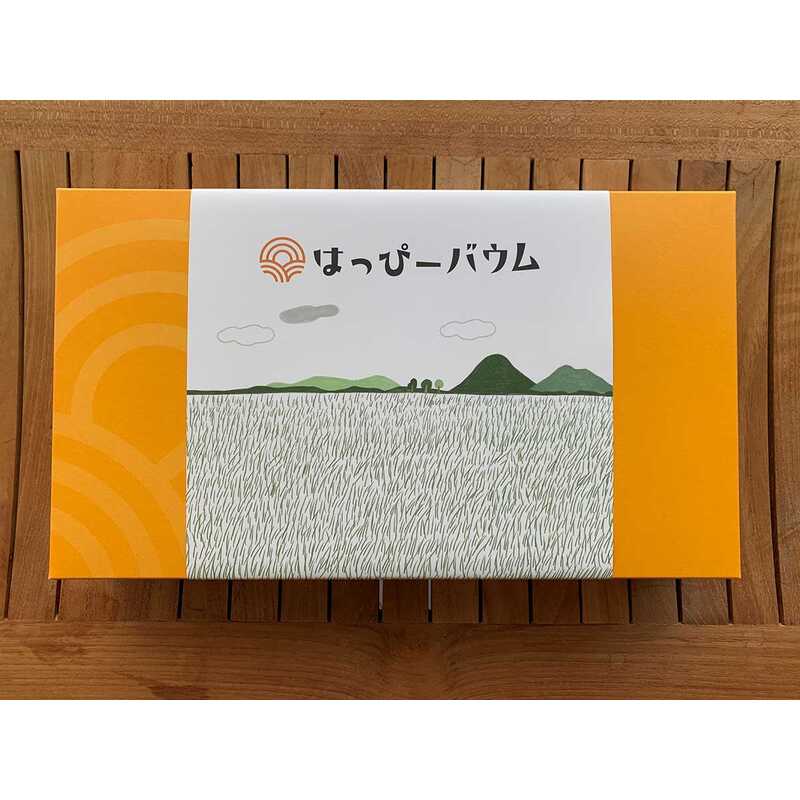 はっぴーバウム